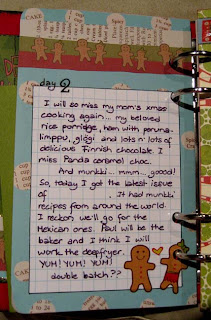 CAKE
day 2
I will so miss my mom's xmas
cooking again... my beloved
rice porridge, ham with peruna-
limppu, glögi and lots n lots of
delicious Finnish chocolate. I
miss Panda caramel choc.
And munkki... mmm... goood!
So, today I got the latest issue
of It had munkki
recipes from around the world.
I reckon we'll go for the
Mexican ones. Paul will be the
baker and I think I will
work the deepfryer.
YUM! YUM! YUM!
double batch??
CAKE